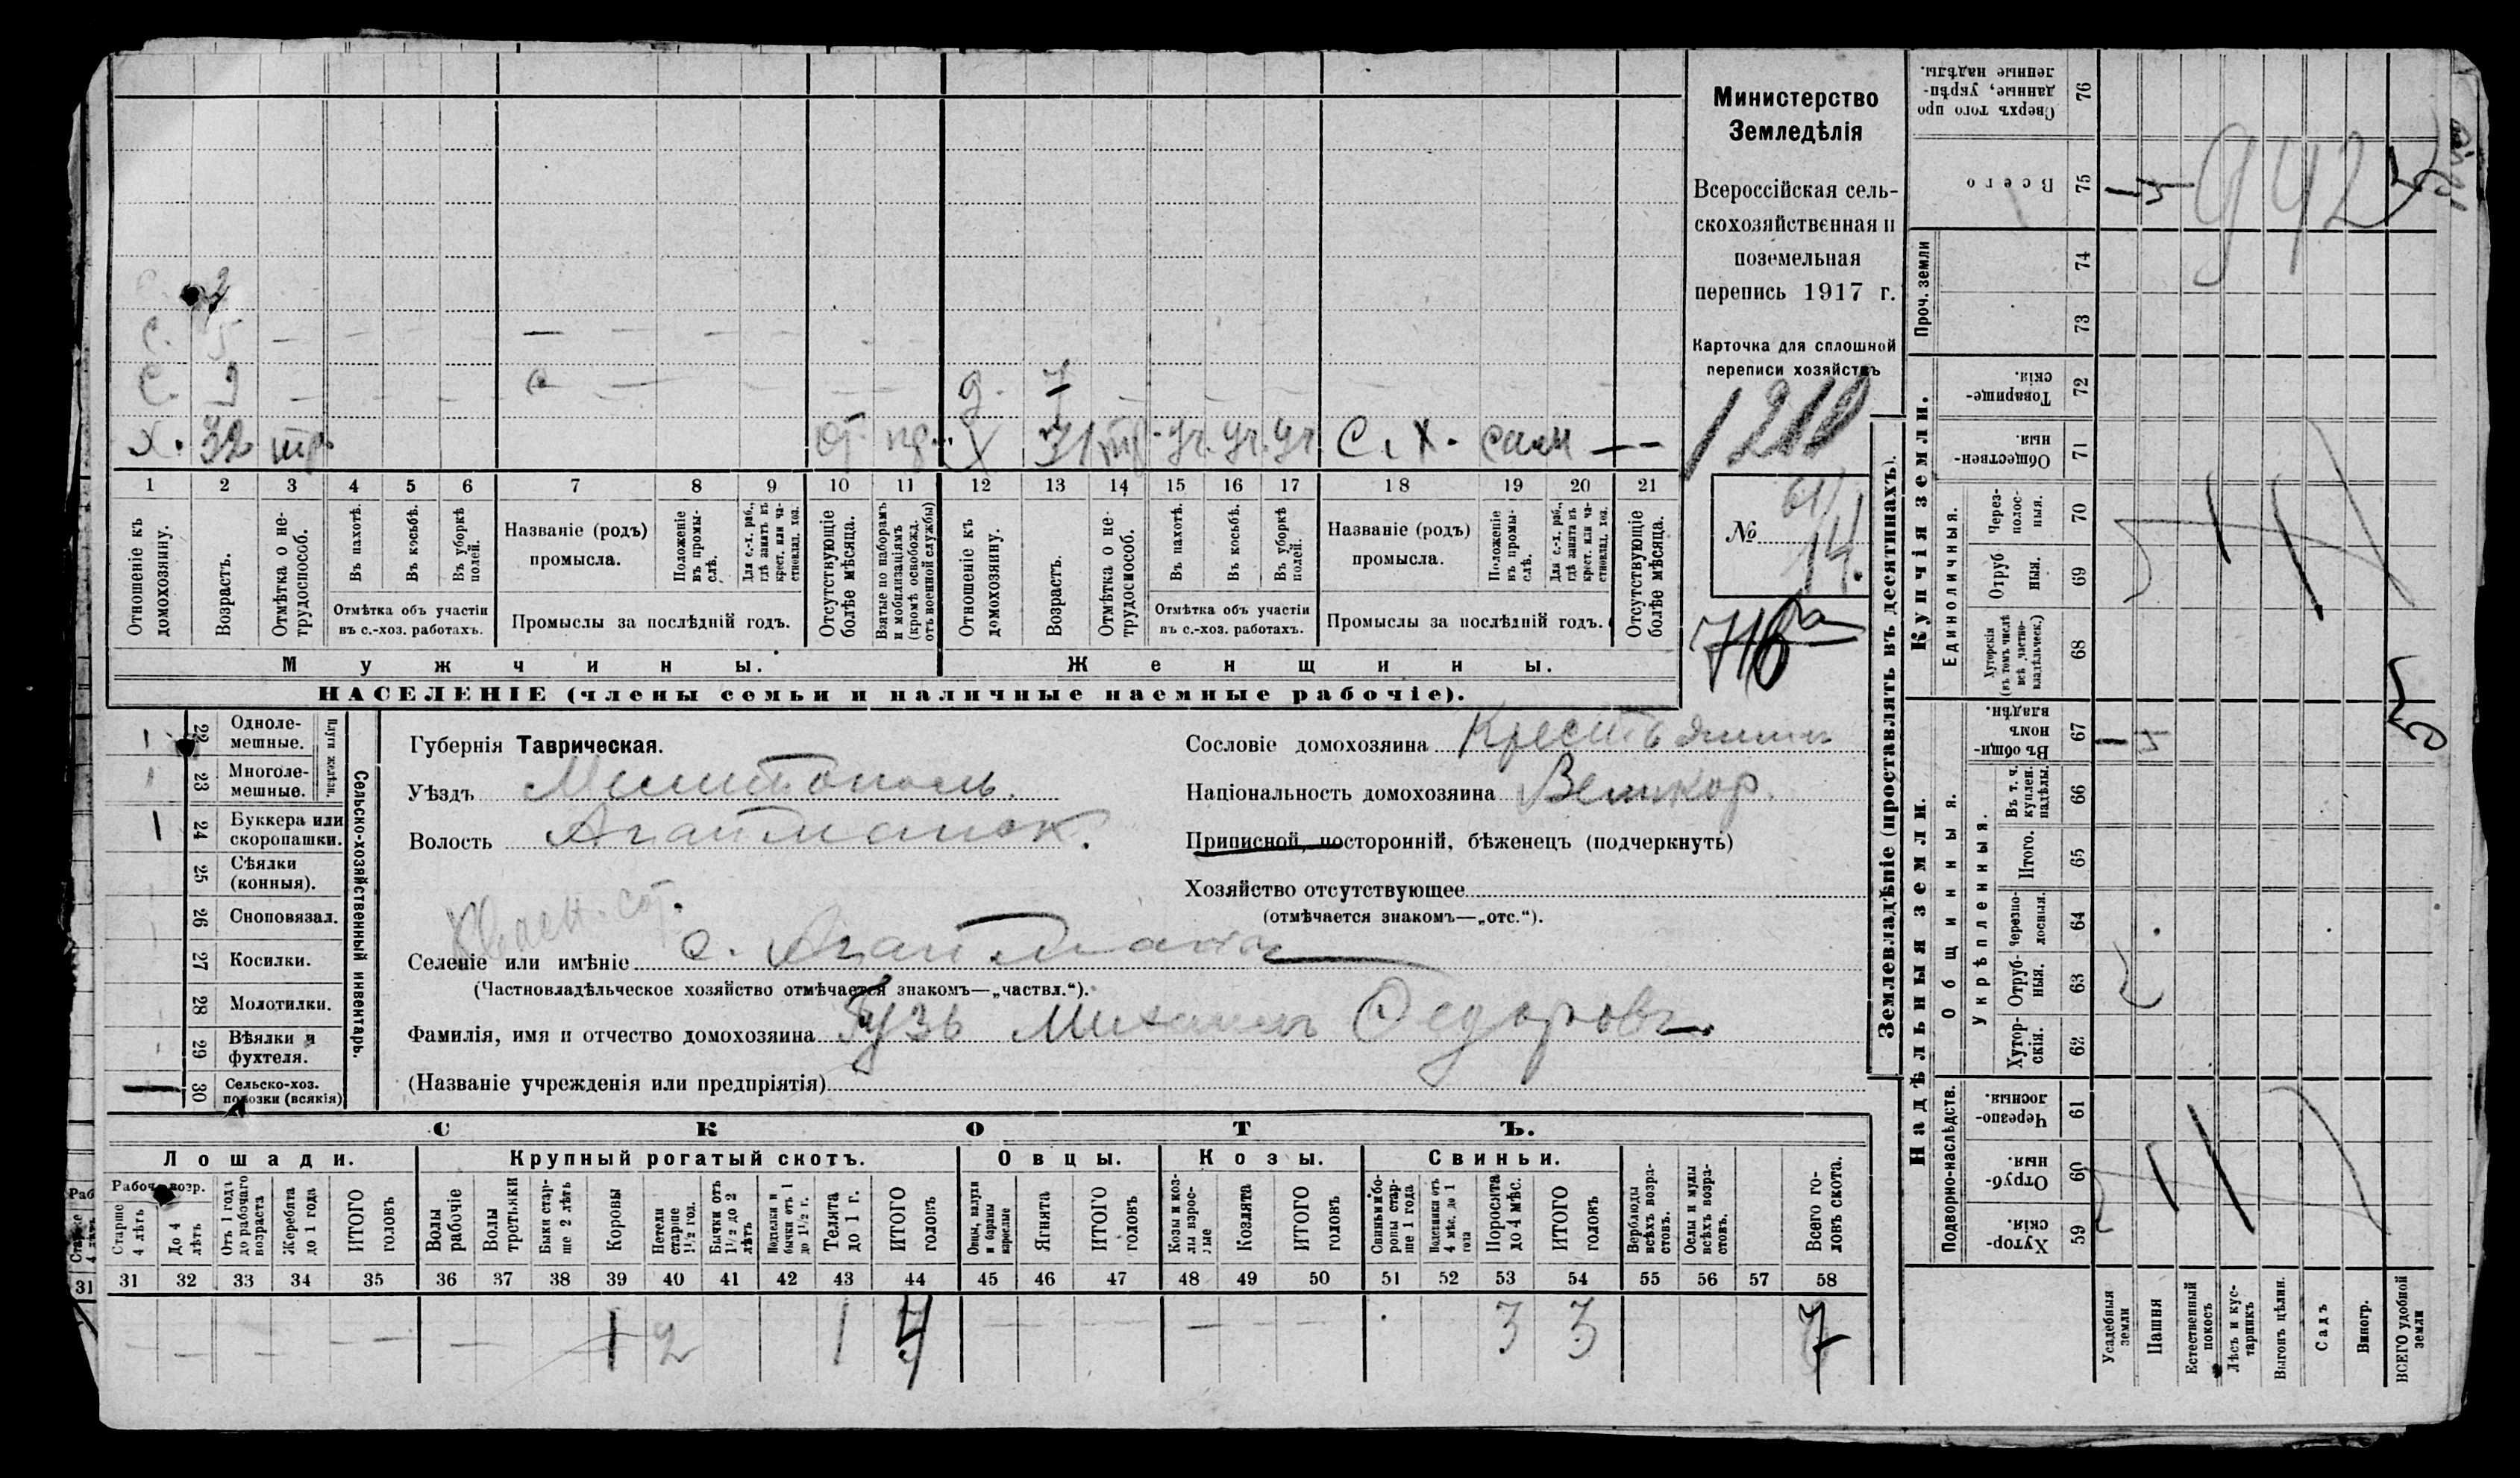 Министерство
Земледѣлія
Всероссійская сель-
скохозяйственная и
поземельная
перепись 1917 г.
Карточка для сплошной
переписи хозяйствъ
1210
№ 61/14.
716а
С. 5
С. 9
Д. 7
Х. 32 тр. от. пр. Х 31 тр. уч. уч. уч С. Х. сам — —
1 2 3 4 5 6 7 8 9 10 11 12 13 14 15 16 17 18 19 20 21
Отношеніе къ домохозяину.
Возрастъ.
Отмѣтка о не-трудоспособ.
Въ пахотѣ.
Въ косьбѣ.
Въ уборкѣ полей.
Отмѣтка объ участіи въ с.-хоз. работахъ.
Названіе (родъ) промысла.
Положеніе въ промы-слѣ.
Для с.-х. раб., гдѣ занятъ въ крест. или ча-стновлад. хоз.
Промыслы за послѣдній годъ.
Отсутствующіе болѣе мѣсяца.
Взятые по наборамъ и мобилизаціямъ (кромѣ освобожд. отъ военной службы)
Отношеніе къ домохозяину.
Возрастъ.
Отмѣтка о не-трудоспособ.
Въ пахотѣ.
Въ косьбѣ.
Въ уборкѣ полей.
Отмѣтка объ участіи въ с.-хоз. работахъ.
Названіе (родъ) промысла.
Положеніе въ промы-слѣ.
Для с.-х. раб., гдѣ занята въ крест. или ча-стновлад. хоз.
Промыслы за послѣдній годъ.
Отсутствующіе болѣе мѣсяца.
Мужчины. Женщины.
НАСЕЛЕНІЕ (члены семьи и наличные наемные рабочіе).
22 Одноле-мешные.
23 Многоле-мешные.
Плуги желѣзн.
24 Буккера или скоропашки.
25 Сѣялки (конныя).
26 Сноповязал.
27 Косилки.
28 Молотилки.
29 Вѣялки и фухтеля.
30 Сельско-хоз. повозки (всякія)
Сельско-хозяйственный инвентарь.
Губернія Таврическая.
Уѣздъ Мелитополь.
Волость Агайманск.
Селеніе или имѣніе с. Агайманы
(Частновладѣльческое хозяйство отмѣчается знакомъ—„частвл.“).
Фамилія, имя и отчество домохозяина Гузь Михаилъ Федоровъ.
(Названіе учрежденія или предпріятія)
Сословіе домохозяина Крестьянинъ
Національность домохозяина Великор.
Приписной, посторонній, бѣженецъ (подчеркнуть)
Хозяйство отсутствующее
(отмѣчается знакомъ—„отс.“).
СКОТЪ.
Лошади. Крупный рогатый скотъ. Овцы. Козы. Свиньи.
Рабоч. возр.
Старше 4 лѣтъ
До 4 лѣтъ
Отъ 1 года до рабочаго возраста
Жеребята до 1 года
ИТОГО головъ
Волы рабочіе
Волы третьяки
Быки стар-ше 2 лѣтъ
Коровы
Нетели старше 1½ год.
Бычки отъ 1½ до 2 лѣтъ
Подтелки и бычки отъ 1 до 1½ г.
Телята до 1 г.
ИТОГО головъ
Овцы, валухи и бараны взрослые
Ягнята
ИТОГО головъ
Козы и коз-лы взрос-лые
Козлята
ИТОГО головъ
Свиньи и бо-ровы стар-ше 1 года
Подсвинки отъ 4 мѣс. до 1 года
Поросята до 4 мѣс.
ИТОГО головъ
Верблюды всѣхъ возра-стовъ.
Ослы и мулы всѣхъ возра-стовъ.
Всего го-ловъ скота.
31 32 33 34 35 36 37 38 39 40 41 42 43 44 45 46 47 48 49 50 51 52 53 54 55 56 57 58
1 2 1 4 3 3 7
Землевладѣніе (проставлять въ десятинахъ).
Купчія земли.
Надѣльныя земли.
Сверхъ того про данные, укрѣп-ленные надѣлы. 76
Всего 75
Проч. земли 74 73
Товарище-скія. 72
Обществен-ныя. 71
Единоличныя.
Через-полос-ныя. 70
Отруб ныя. 69
Хуторскія (въ томъ числѣ всѣ „частно-владѣльческ.) 68
Общинныя.
Въ общин-номъ владѣн. 67
Укрѣпленныя.
Въ т. ч. куплен. надѣлы. 66
Итого. 65
Черезпо-лосныя. 64
Отруб-ныя. 63
Хутор-скія. 62
Подворно-наслѣдств.
Черезпо-лосныя. 61
Отруб-ныя. 60
Хутор-скія. 59
942
Усадебныя земли
Пашня
Естественный покосъ
Лѣсъ и кус-тарникъ
Выгонъ цѣлин.
Садъ
Виногр.
ВСЕГО удобной земли